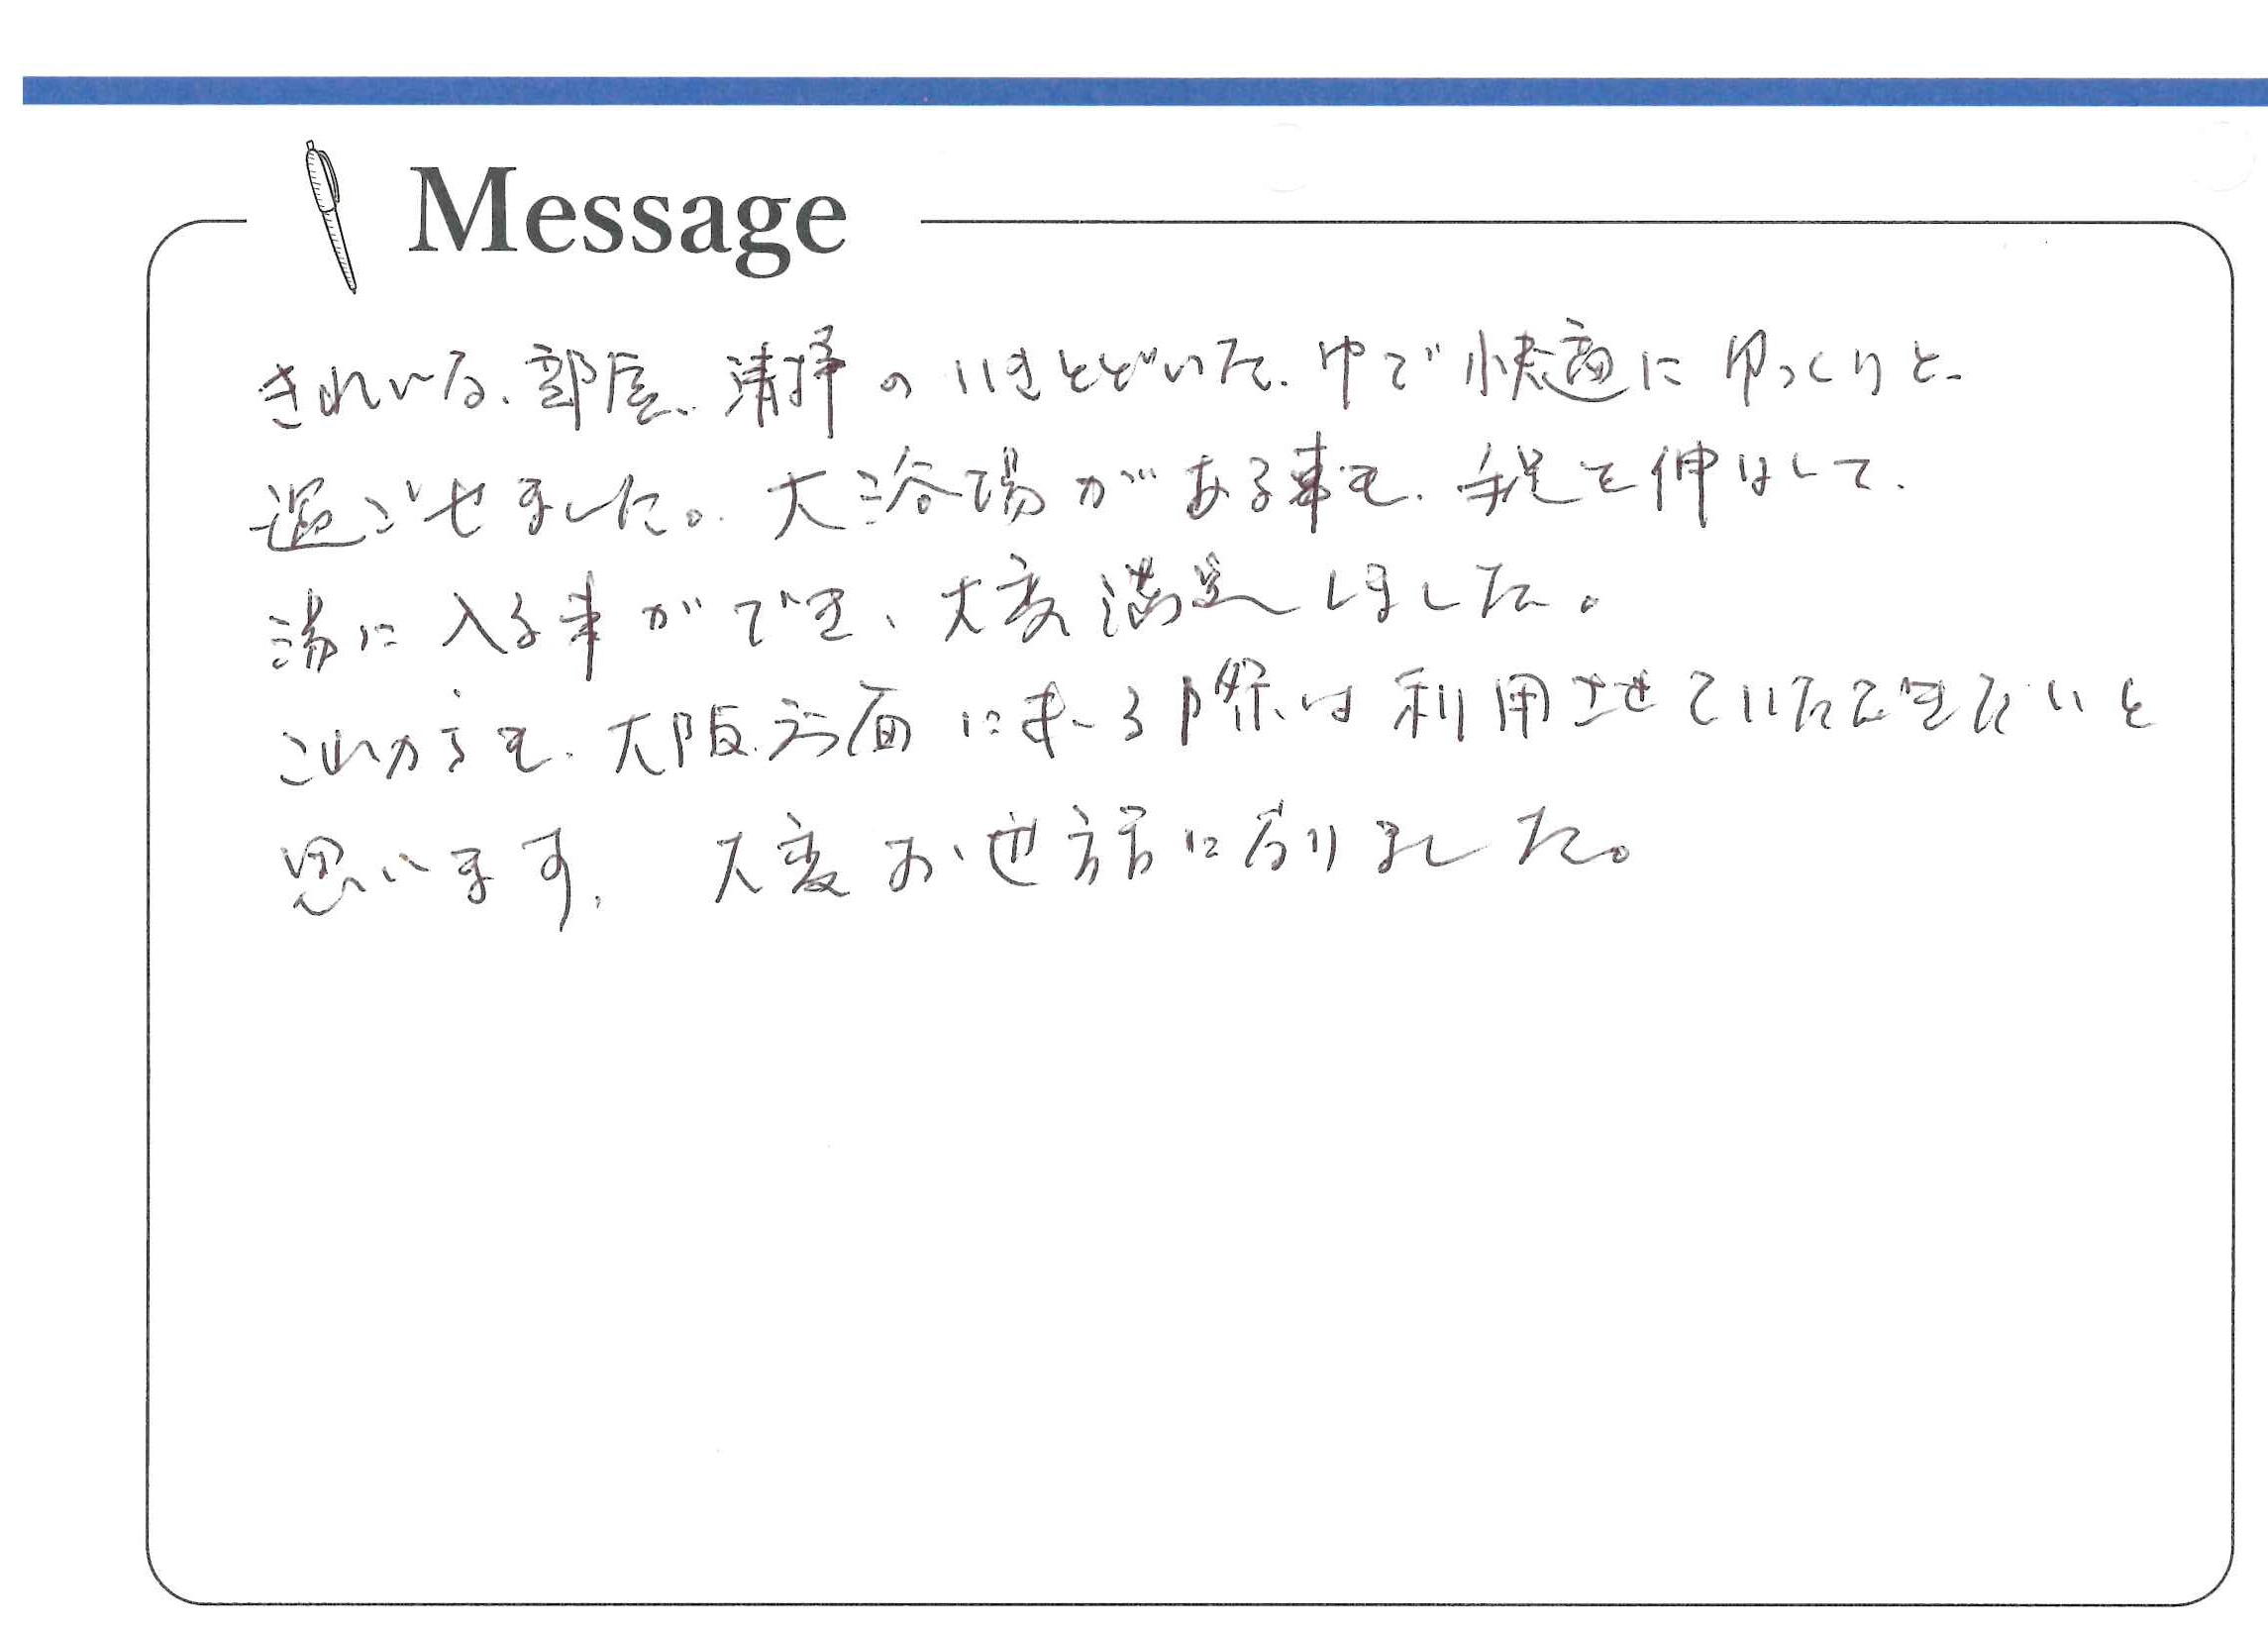 Message
きれいな、部屋、清掃のいきとどいた、中で快適にゆっくりと、
過ごせました。大浴場がある事も、手足を伸ばして、
湯に入る事ができ、大変満足しました。
これからも、大阪方面に来る際は利用させていただきたいと
思います。大変お世話になりました。